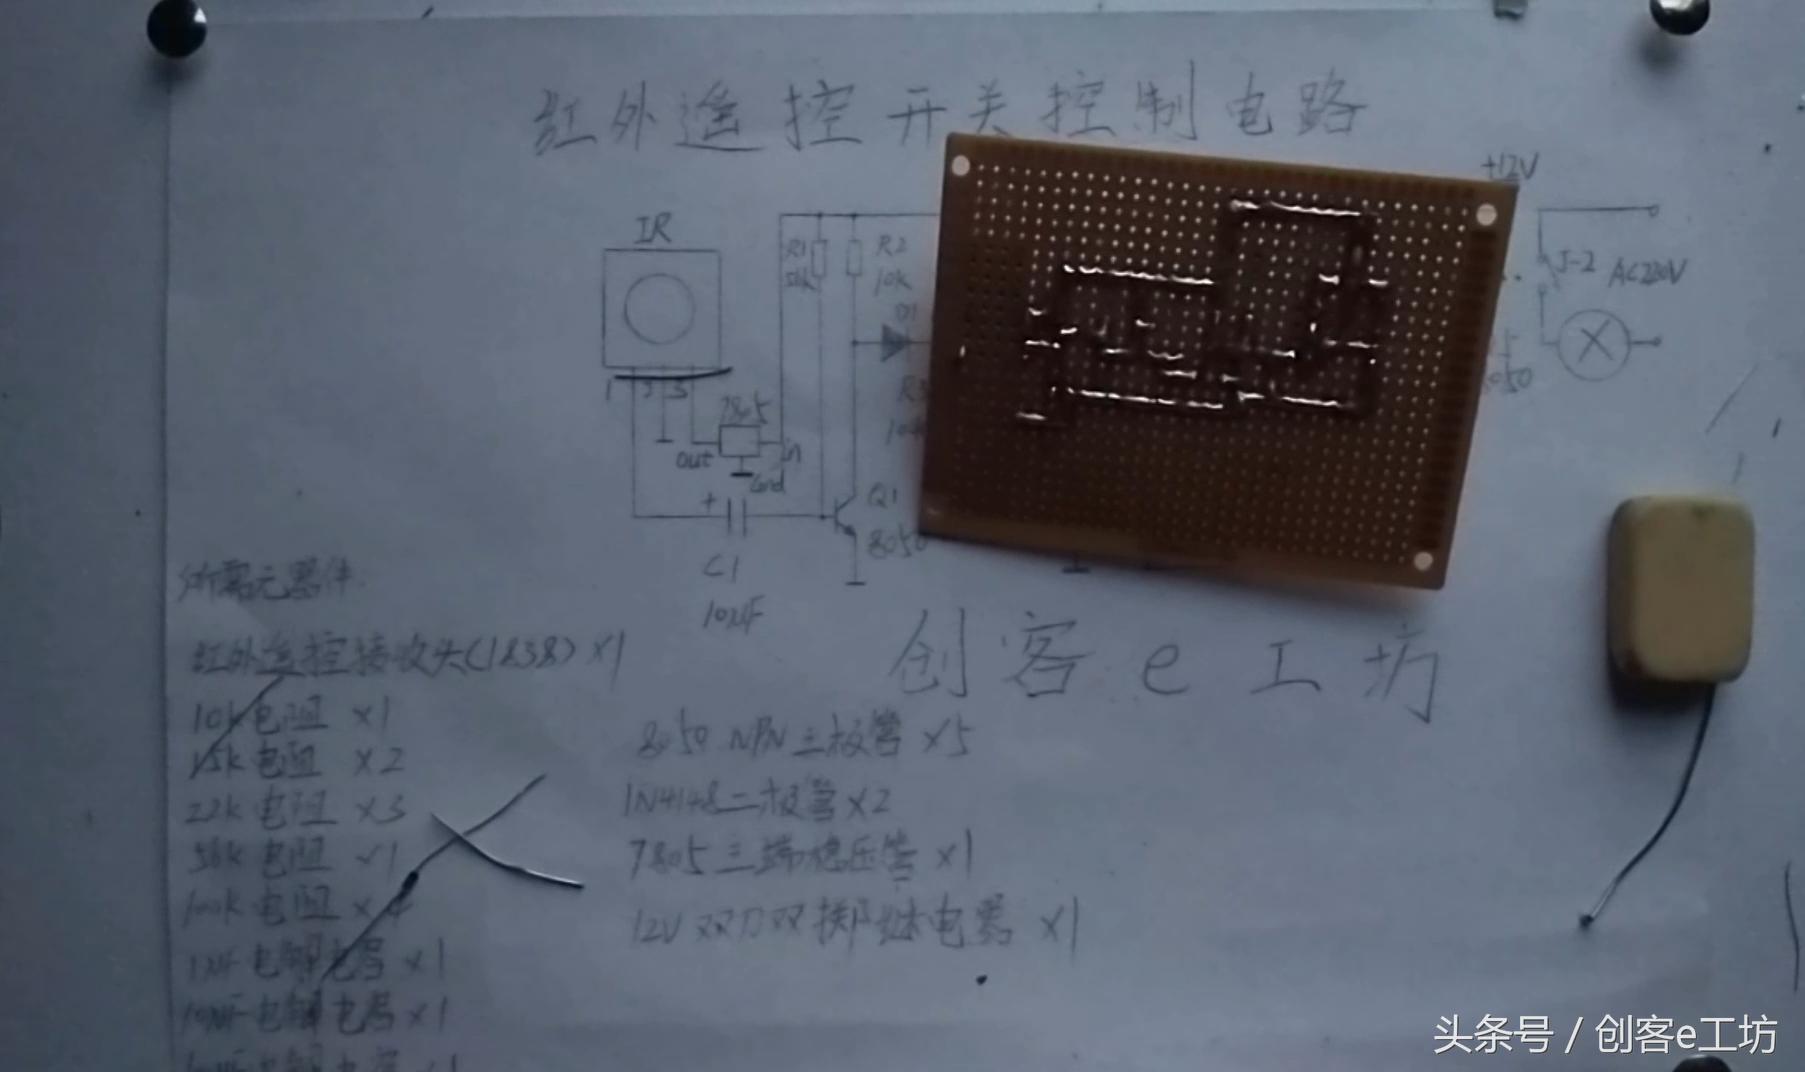 红外遥控开关控制电路
+12V
IR
R1
R2
10k
J-2
AC220V
D1
1
2
3
7805
out
in
Gnd
+
Q1
8050
C1
10uF
所需元器件
红外遥控接收头(1838)×1
10k电阻 ×1
15k电阻 ×2
22k电阻 ×3
56k电阻 ×1
100k电阻
1uF电解电容 ×1
10uF电解电容 ×1
创客e工坊
8050 NPN三极管 ×5
1N4148二极管×2
7805三端稳压管 ×1
12V双刀双掷继电器 ×1
头条号 / 创客e工坊